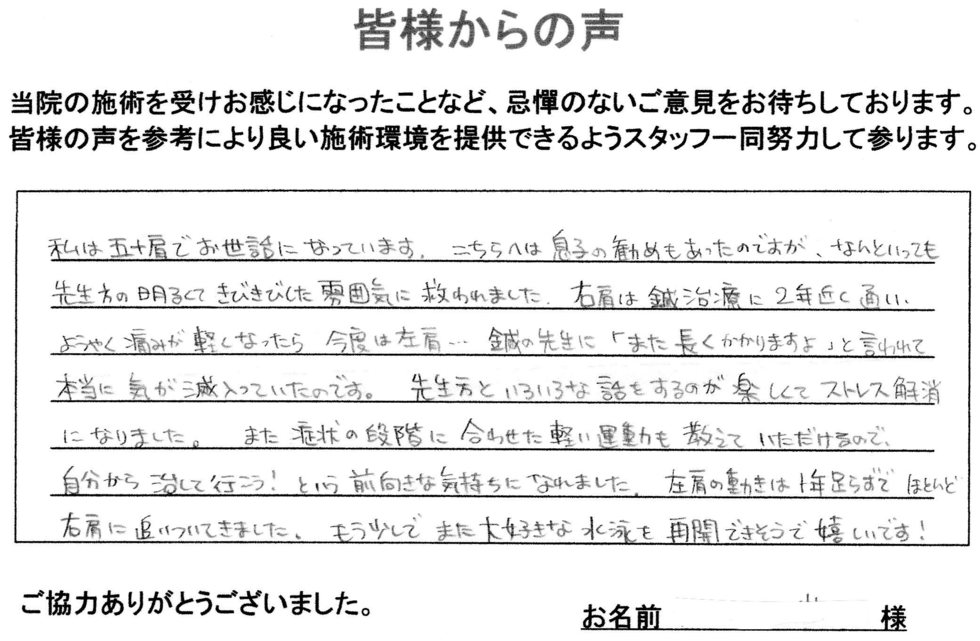 皆様からの声
当院の施術を受けお感じになったことなど、忌憚のないご意見をお待ちしております。
皆様の声を参考により良い施術環境を提供できるようスタッフ一同努力して参ります。
私は五十肩でお世話になっています。こちらへは息子の勧めもあったのですが、なんといっても
先生方の明るくてきびきびした雰囲気に救われました。右肩は鍼治療に2年近く通い、
ようやく痛みが軽くなったら今度は左肩… 鍼の先生に「また長くかかりますよ」と言われて
本当に気が滅入っていたのです。先生方といろいろな話をするのが楽しくてストレス解消
になりました。また症状の段階に合わせた軽い運動も教えていただけるので、
自分から治して行こう!という前向きな気持ちになれました。左肩の動きは1年足らずでほとんど
右肩に追いついてきました。もう少しでまた大好きな水泳を再開できそうで嬉しいです!
ご協力ありがとうございました。
お名前 様